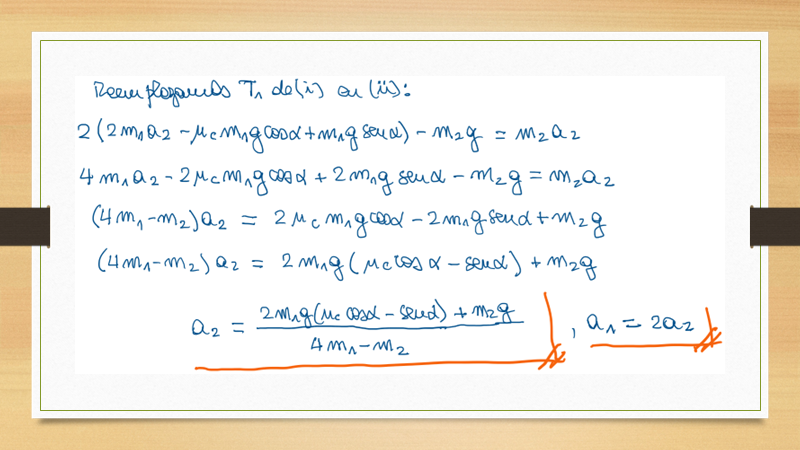 Reemplazando T₁ de (i) en (ii):
2(2m₁a₂ - μc m₁g cosα + m₁g senα) - m₂g = m₂a₂
4m₁a₂ - 2μc m₁g cosα + 2m₁g senα - m₂g = m₂a₂
(4m₁-m₂)a₂ = 2μc m₁g cosα - 2m₁g senα + m₂g
(4m₁-m₂)a₂ = 2m₁g(μc cosα - senα) + m₂g
a₂ = (2m₁g(μc cosα - senα) + m₂g) / (4m₁-m₂) , a₁ = 2a₂